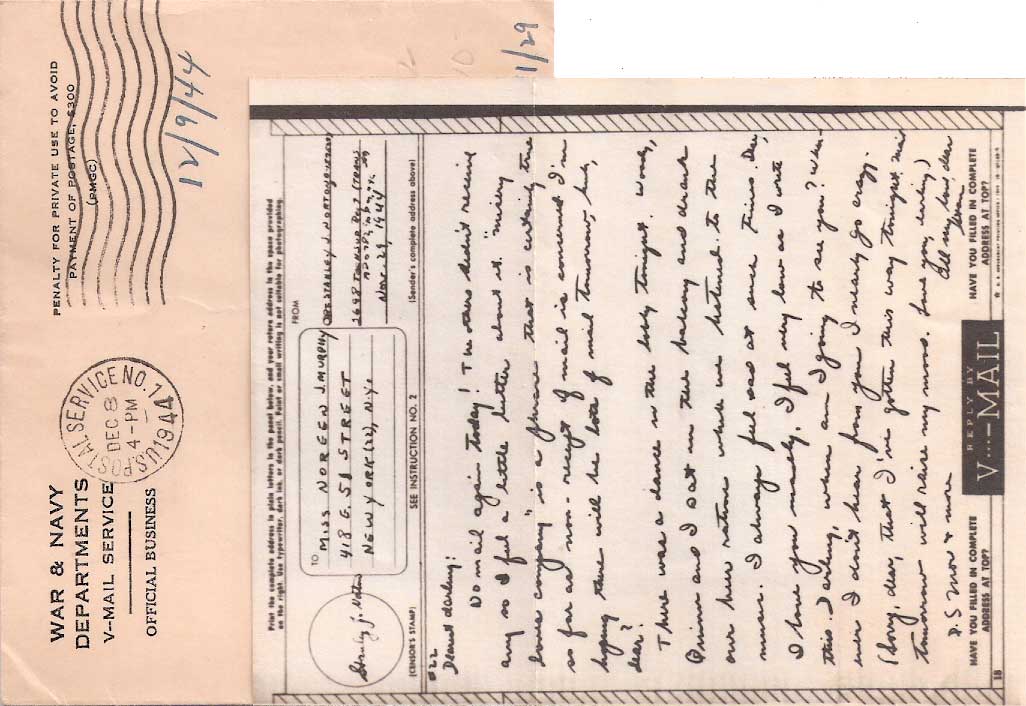 PENALTY FOR PRIVATE USE TO AVOID
PAYMENT OF POSTAGE, $300
(PMGC)
12/9/44
11/29
U.S. POSTAL SERVICE NO. 1
DEC 8
4-PM
1944
WAR & NAVY
DEPARTMENTS
V-MAIL SERVICE
OFFICIAL BUSINESS
Print the complete address in plain letters in the panel below, and your return address in the space provided
on the right. Use typewriter, dark ink, or dark pencil. Faint or small writing is not suitable for photographing.
TO
MISS NOREEN J. MURPHY
418 E. 51 STREET
NEW YORK (22), N.Y.
FROM
STANLEY J. NORTON
Nov. 29, 1944
(CENSOR'S STAMP)
SEE INSTRUCTION NO. 2
(Sender's complete address above)
#22
Dearest darling:
No mail again today! The others didn't receive
any so I feel a little better about it. "misery
loves company," is a phrase that is certainly true
so far as non-receipt of mail is concerned. I'm
hoping there will be lots of mail tomorrow, huh,
dear?
There was a dance in the lobby tonight. Wood,
Quinn and I sat in the balcony and drank
our beer rations while we listened to the
music. I always feel sad at such times. Dear,
I love you madly. I feel very low as I write
this. Darling, when am I going to see you? When-
ever I don't hear from you I nearly go crazy.
(Sorry, dear, that I've gotten this way tonight. Mail
tomorrow will raise my morale. Love you, darling)
All my love, dear
Stan
P.S. More & more
HAVE YOU FILLED IN COMPLETE
ADDRESS AT TOP?
REPLY BY
V···–MAIL
HAVE YOU FILLED IN COMPLETE
ADDRESS AT TOP?